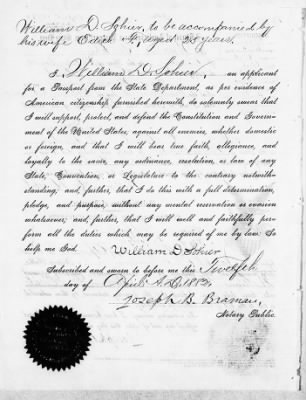 William D Sohier, to be accompanied by
his wife Edith F, aged 28 years.
I, William D. Sohier, an applicant
for a Passport from the State Department, as per evidence of
American citizenship furnished herewith, do solemnly swear that
I will support, protect, and defend the Constitution and Govern-
ment of the United States, against all enemies, whether domestic
or foreign, and that I will bear true faith, allegiance, and
loyalty to the same, any ordinance, resolution, or law of any
State, Convention, or Legislature to the contrary notwith-
standing; and, further, that I do this with a full determination,
pledge, and purpose, without any mental reservation or evasion
whatsoever; and, further, that I will well and faithfully per-
form all the duties which may be required of me by law. So
help me God.
William D Sohier
Subscribed and sworn to before me this Twelfth
day of April A.D. 188
Joseph B. Braman,
Notary Public.